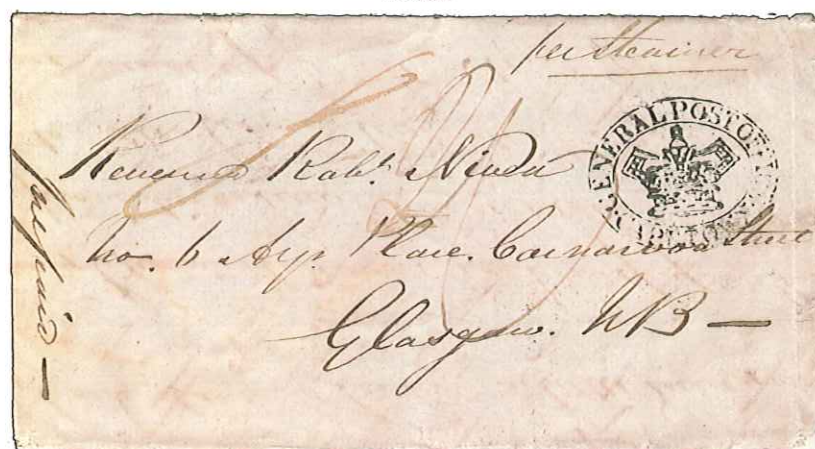 per Steamer
GENERAL POST OFFICE
Reverend Robt. Niven
No. 6 Ayr Place. Carnarvon Street
Glasgow. NB —
prepaid —